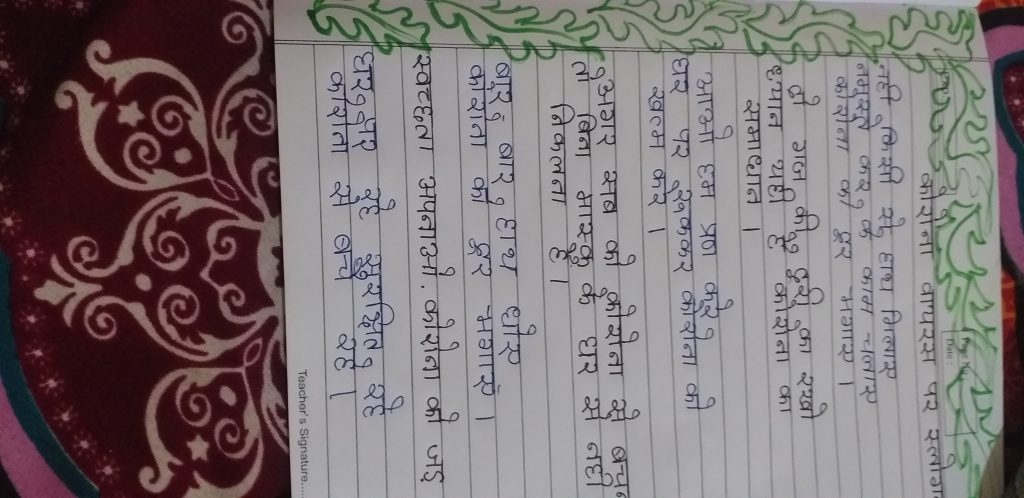 Page No.
Date
कोरोना वायरस पर स्लोगन
नही किसी से, हाथ मिलाए
नमस्ते कर, के काम चलाए
कोरोना को दूर भगाए।
दो गज की दूरी का रखो
ध्यान यही है कोरोना का
समाधान।
आओ हम प्रण करे
घर पर रुककर कोरोना को
खत्म करे।
अगर सब को कोरोना से बचना
तो बिना मास्क के घर से नही
निकलना है।
बार बार, हाथ धोए
कोरोना को दूर भगाएं।
स्वच्छता अपनाओ. कोरोना को जड़
घर पर रहे सुरक्षित रहे
कोरोना से बचे रहे।
Teacher's Signature.....